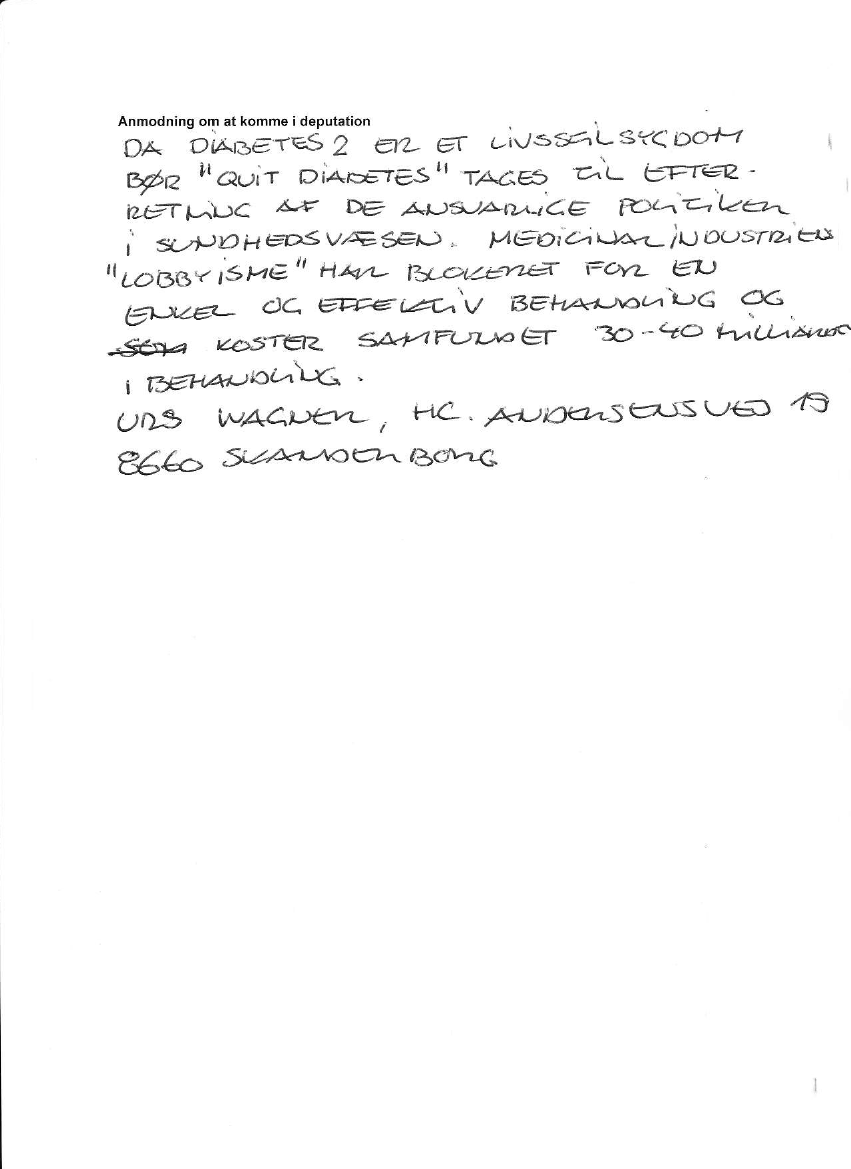 Anmodning om at komme i deputation
DA DIABETES 2 ER ET LIVSSTILSYGDOM
BØR "QUIT DIABETES" TAGES TIL EFTER-
RETNING AF DE ANSVARLIGE POLITIKER
I SUNDHEDSVÆSEN. MEDICINALINDUSTRIEN
"LOBBYISME" HAR BLOKERET FOR EN
ENKEL OG EFFEKTIV BEHANDLING OG
SOM KOSTER SAMFUNDET 30-40 MILLIARDER
I BEHANDLING.
URS WAGNER, HC. ANDERSENSVEJ 19
8660 SKANDERBORG